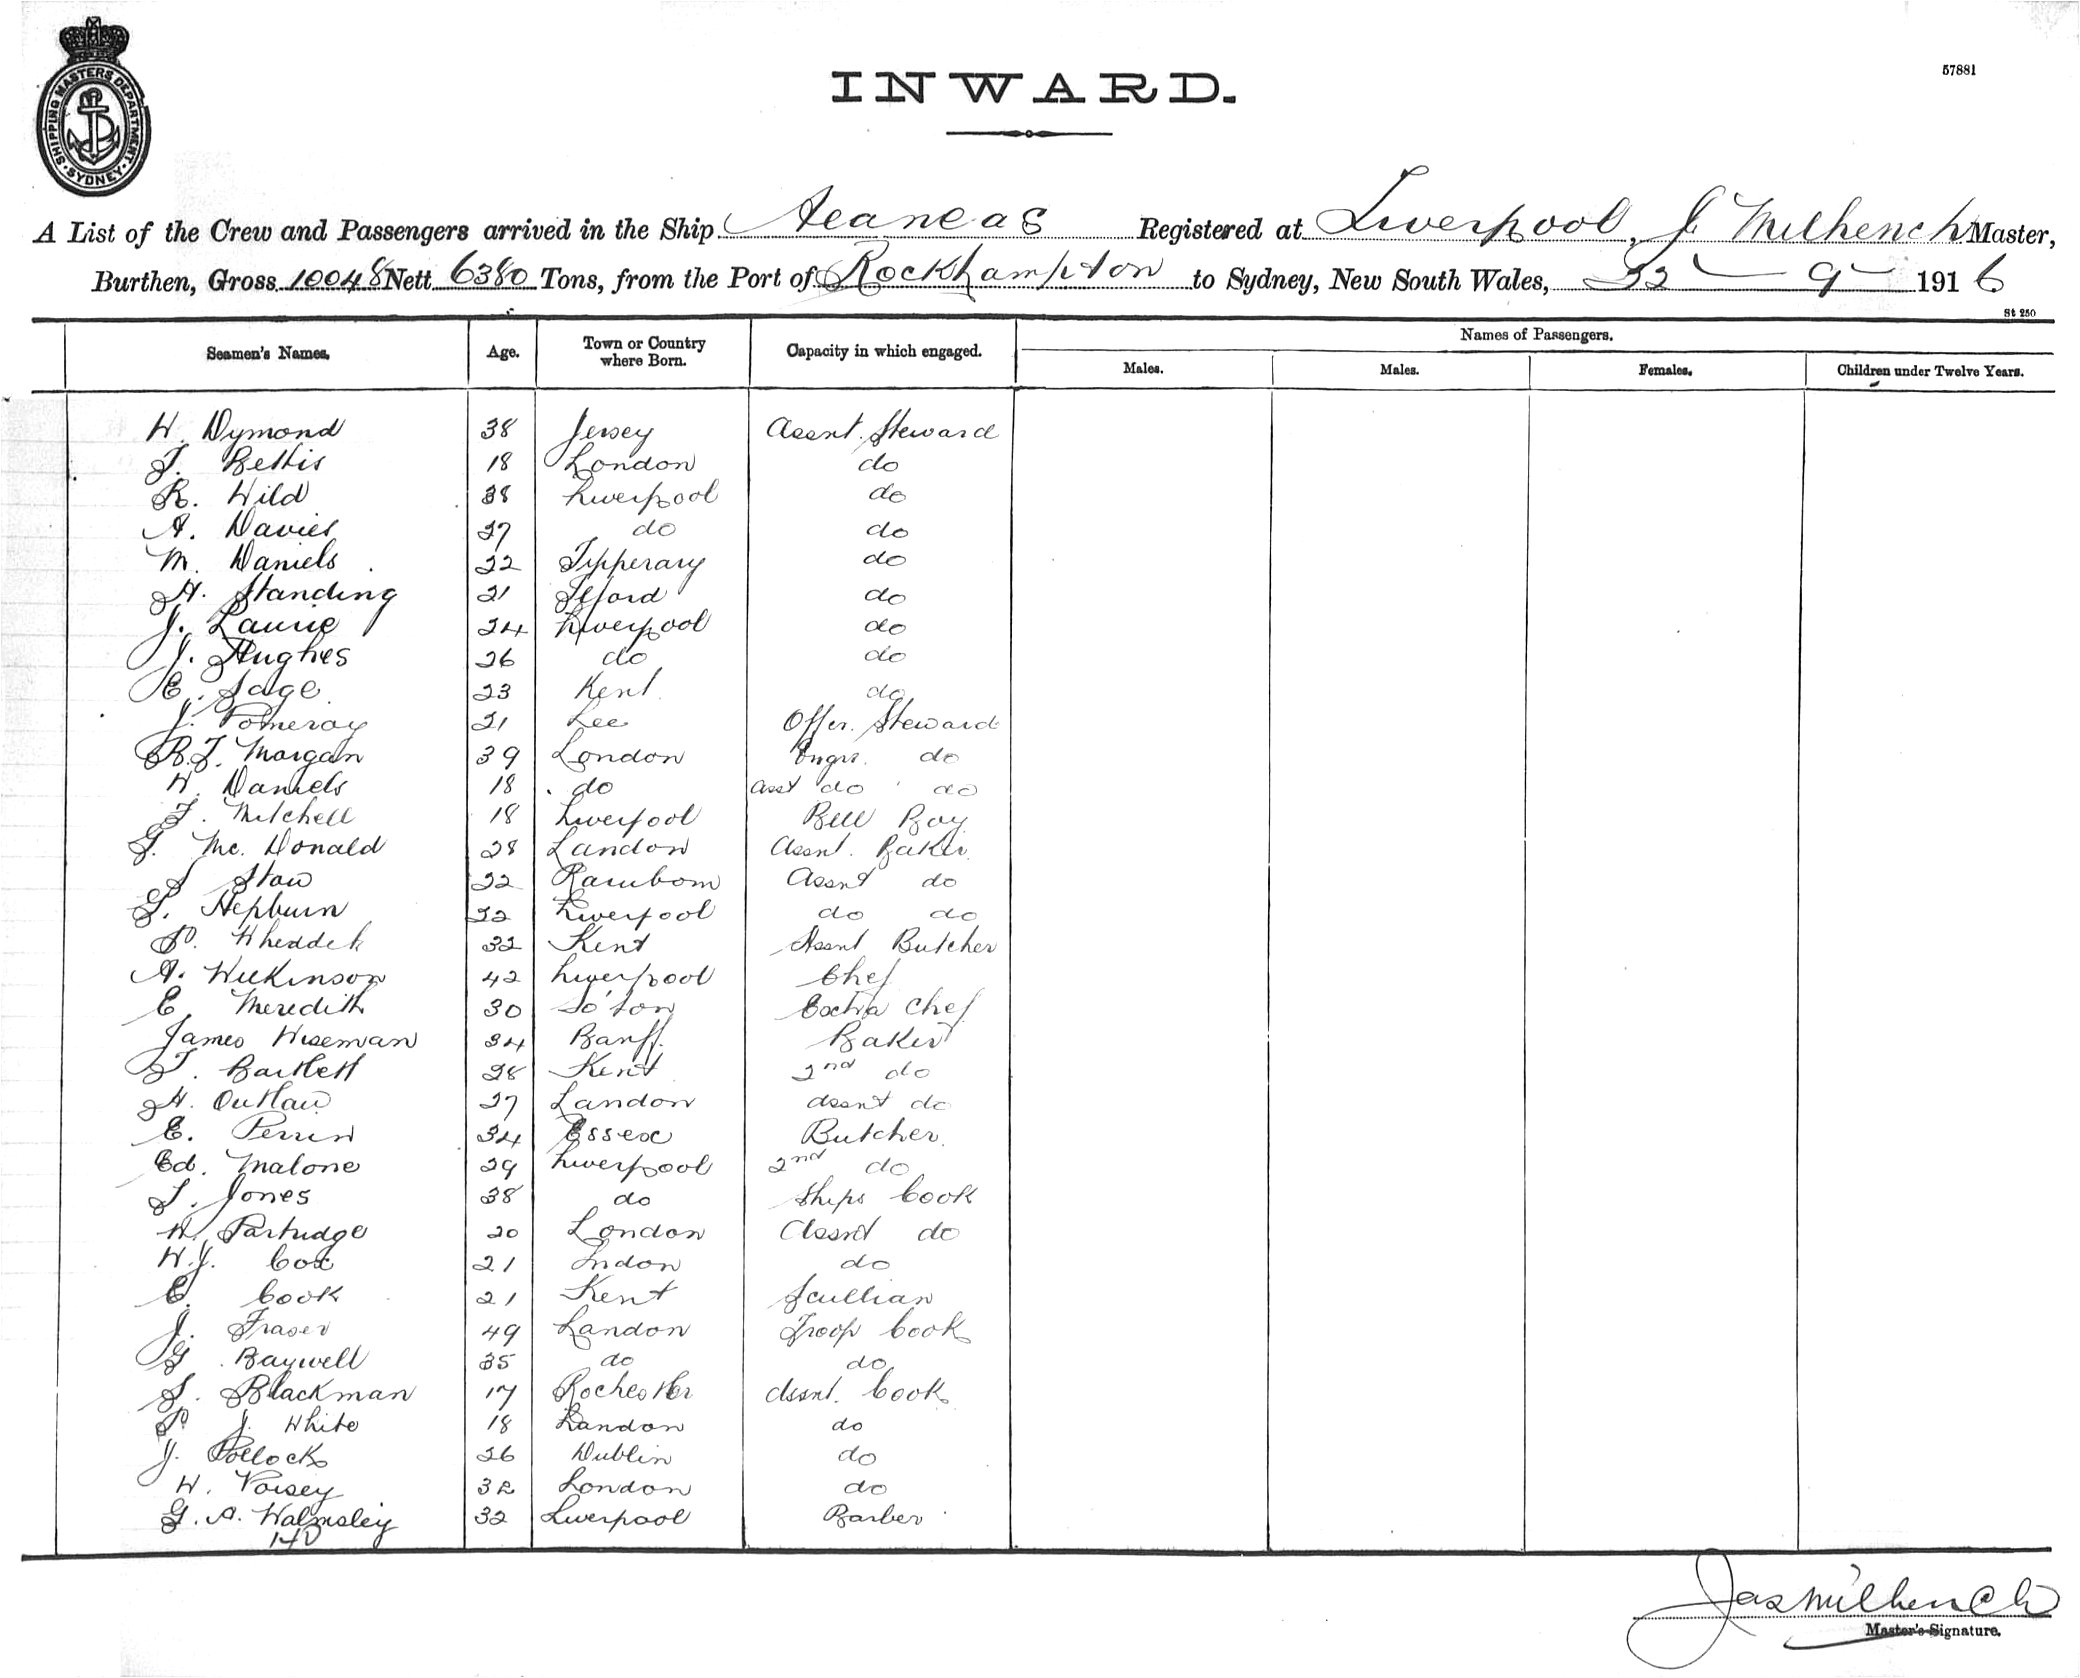 SHIPPING MASTERS DEPARTMENT · SYDNEY ·
57881
INWARD.
A List of the Crew and Passengers arrived in the Ship Aeaneas Registered at Liverpool, J Milhench Master,
Burthen, Gross 10048 Nett 6380 Tons, from the Port of Rockhampton to Sydney, New South Wales, 22 - 9 - 1916
St 250
Seamen's Names. Age. Town or Country where Born. Capacity in which engaged. Names of Passengers.
Males. Males. Females. Children under Twelve Years.
W. Dymond 38 Jersey Assnt. Steward
T. Bettis 18 London do
R. Wild 38 Liverpool do
A. Davies 27 do do
M. Daniels 22 Tipperary do
H. Standing 21 Ilford do
J. Laurie 24 Liverpool do
J. Hughes 26 do do
E. Sage 23 Kent do
J. Pomeroy 21 Lee Offrs. Steward
R.J. Morgan 39 London Engrs. do
W. Daniels 18 do asst do do
F. Mitchell 18 Liverpool Bell Boy
G. Mc. Donald 28 London Assnt. Baker
Stow 22 Assnt do
Hepburn 22 Liverpool do do
P. 32 Kent Assnt Butcher
A. Wilkinson 42 Liverpool Chef
E. Meredith 30 So'ton Extra Chef
James Wiseman 34 Banff. Baker
T. Bartlett 28 Kent 2nd do
H. Outlaw 27 London assnt do
E. Perrin 34 Essex Butcher.
Ed. Malone 29 Liverpool 2nd do
Jones 38 do Ships Cook
W. Partridge 20 London Assnt do
W.J. Cox 21 London do
E. Cook 21 Kent Scullian
J. Fraser 49 London Troop Cook
G. Baywell 35 do do
S. Blackman 17 Rochester Assnt. Cook
P. J. White 18 London do
J. Pollock 26 Dublin do
W. Voisey 32 London do
G. A. Walmsley 32 Liverpool Barber
140
Jas Milhench
Master's Signature.